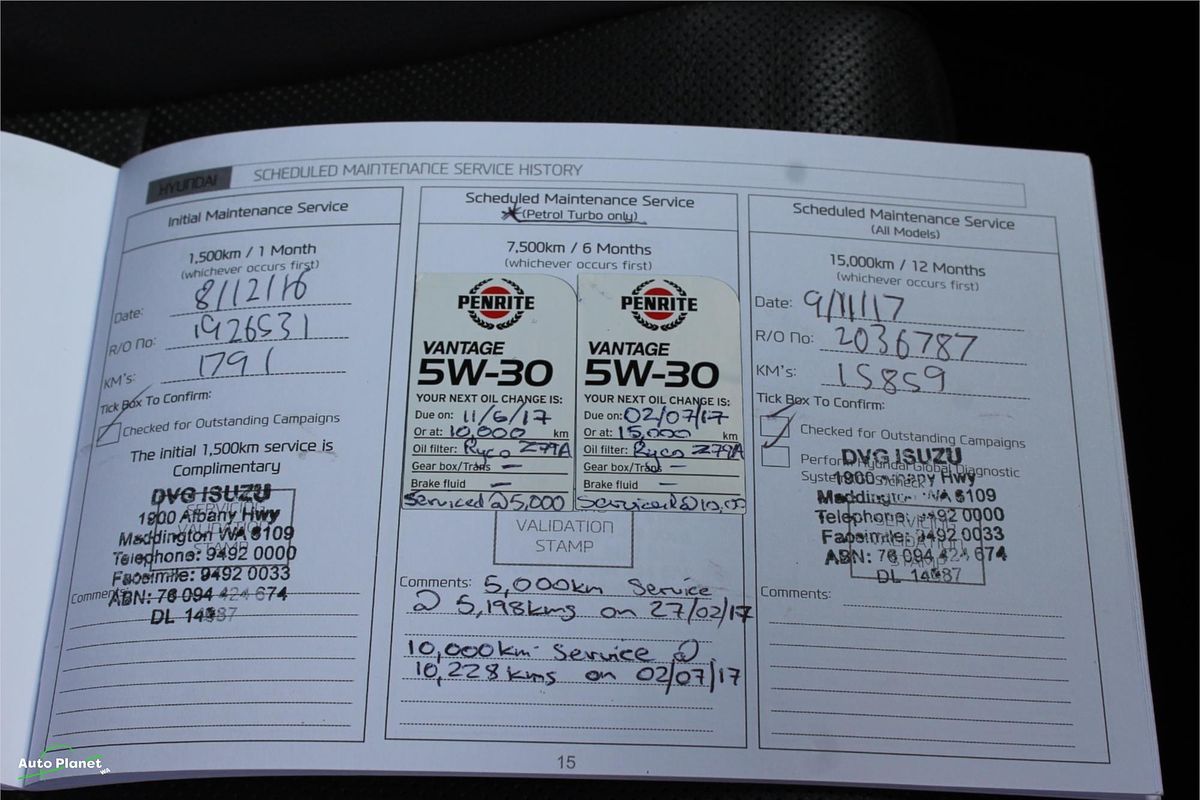 HYUNDAI
SCHEDULED MAINTENANCE SERVICE HISTORY
Initial Maintenance Service
1,500km / 1 Month
(whichever occurs first)
Date: 8/12/16
R/O No: 1926531
KM's: 1791
Tick Box To Confirm:
Checked for Outstanding Campaigns
The initial 1,500km service is
Complimentary
DVG ISUZU
1900 Albany Hwy
Maddington WA 6109
Telephone: 9492 0000
Facsimile: 9492 0033
ABN: 76 094 424 674
DL
SERVICING
VALIDATION
STAMP
Comments:
Scheduled Maintenance Service
(Petrol Turbo only)
7,500km / 6 Months
(whichever occurs first)
PENRITE
VANTAGE
5W-30
YOUR NEXT OIL CHANGE IS:
Due on: 11/6/17
Or at: 10,000 km
Oil filter: Ryco Z79A
Gear box/Trans —
Brake fluid —
Serviced @ 5,000
PENRITE
VANTAGE
5W-30
YOUR NEXT OIL CHANGE IS:
Due on: 02/07/17
Or at: 15,000 km
Oil filter: Ryco Z79A
Gear box/Trans —
Brake fluid —
Serviced @ 10,00
VALIDATION
STAMP
Comments: 5,000km Service
@ 5,198kms on 27/02/17
10,000km Service @
10,228kms on 02/07/17
Scheduled Maintenance Service
(All Models)
15,000km / 12 Months
(whichever occurs first)
Date: 9/11/17
R/O No: 2036787
KM's: 15859
Tick Box To Confirm:
Checked for Outstanding Campaigns
Perform Hyundai Global Diagnostic
System
DVG ISUZU
1900 Albany Hwy
Maddington WA 6109
Telephone: 9492 0000
Facsimile: 9492 0033
ABN: 76 094 424 674
DL
SERVICING
VALIDATION
STAMP
Comments:
15
Auto Planet WA